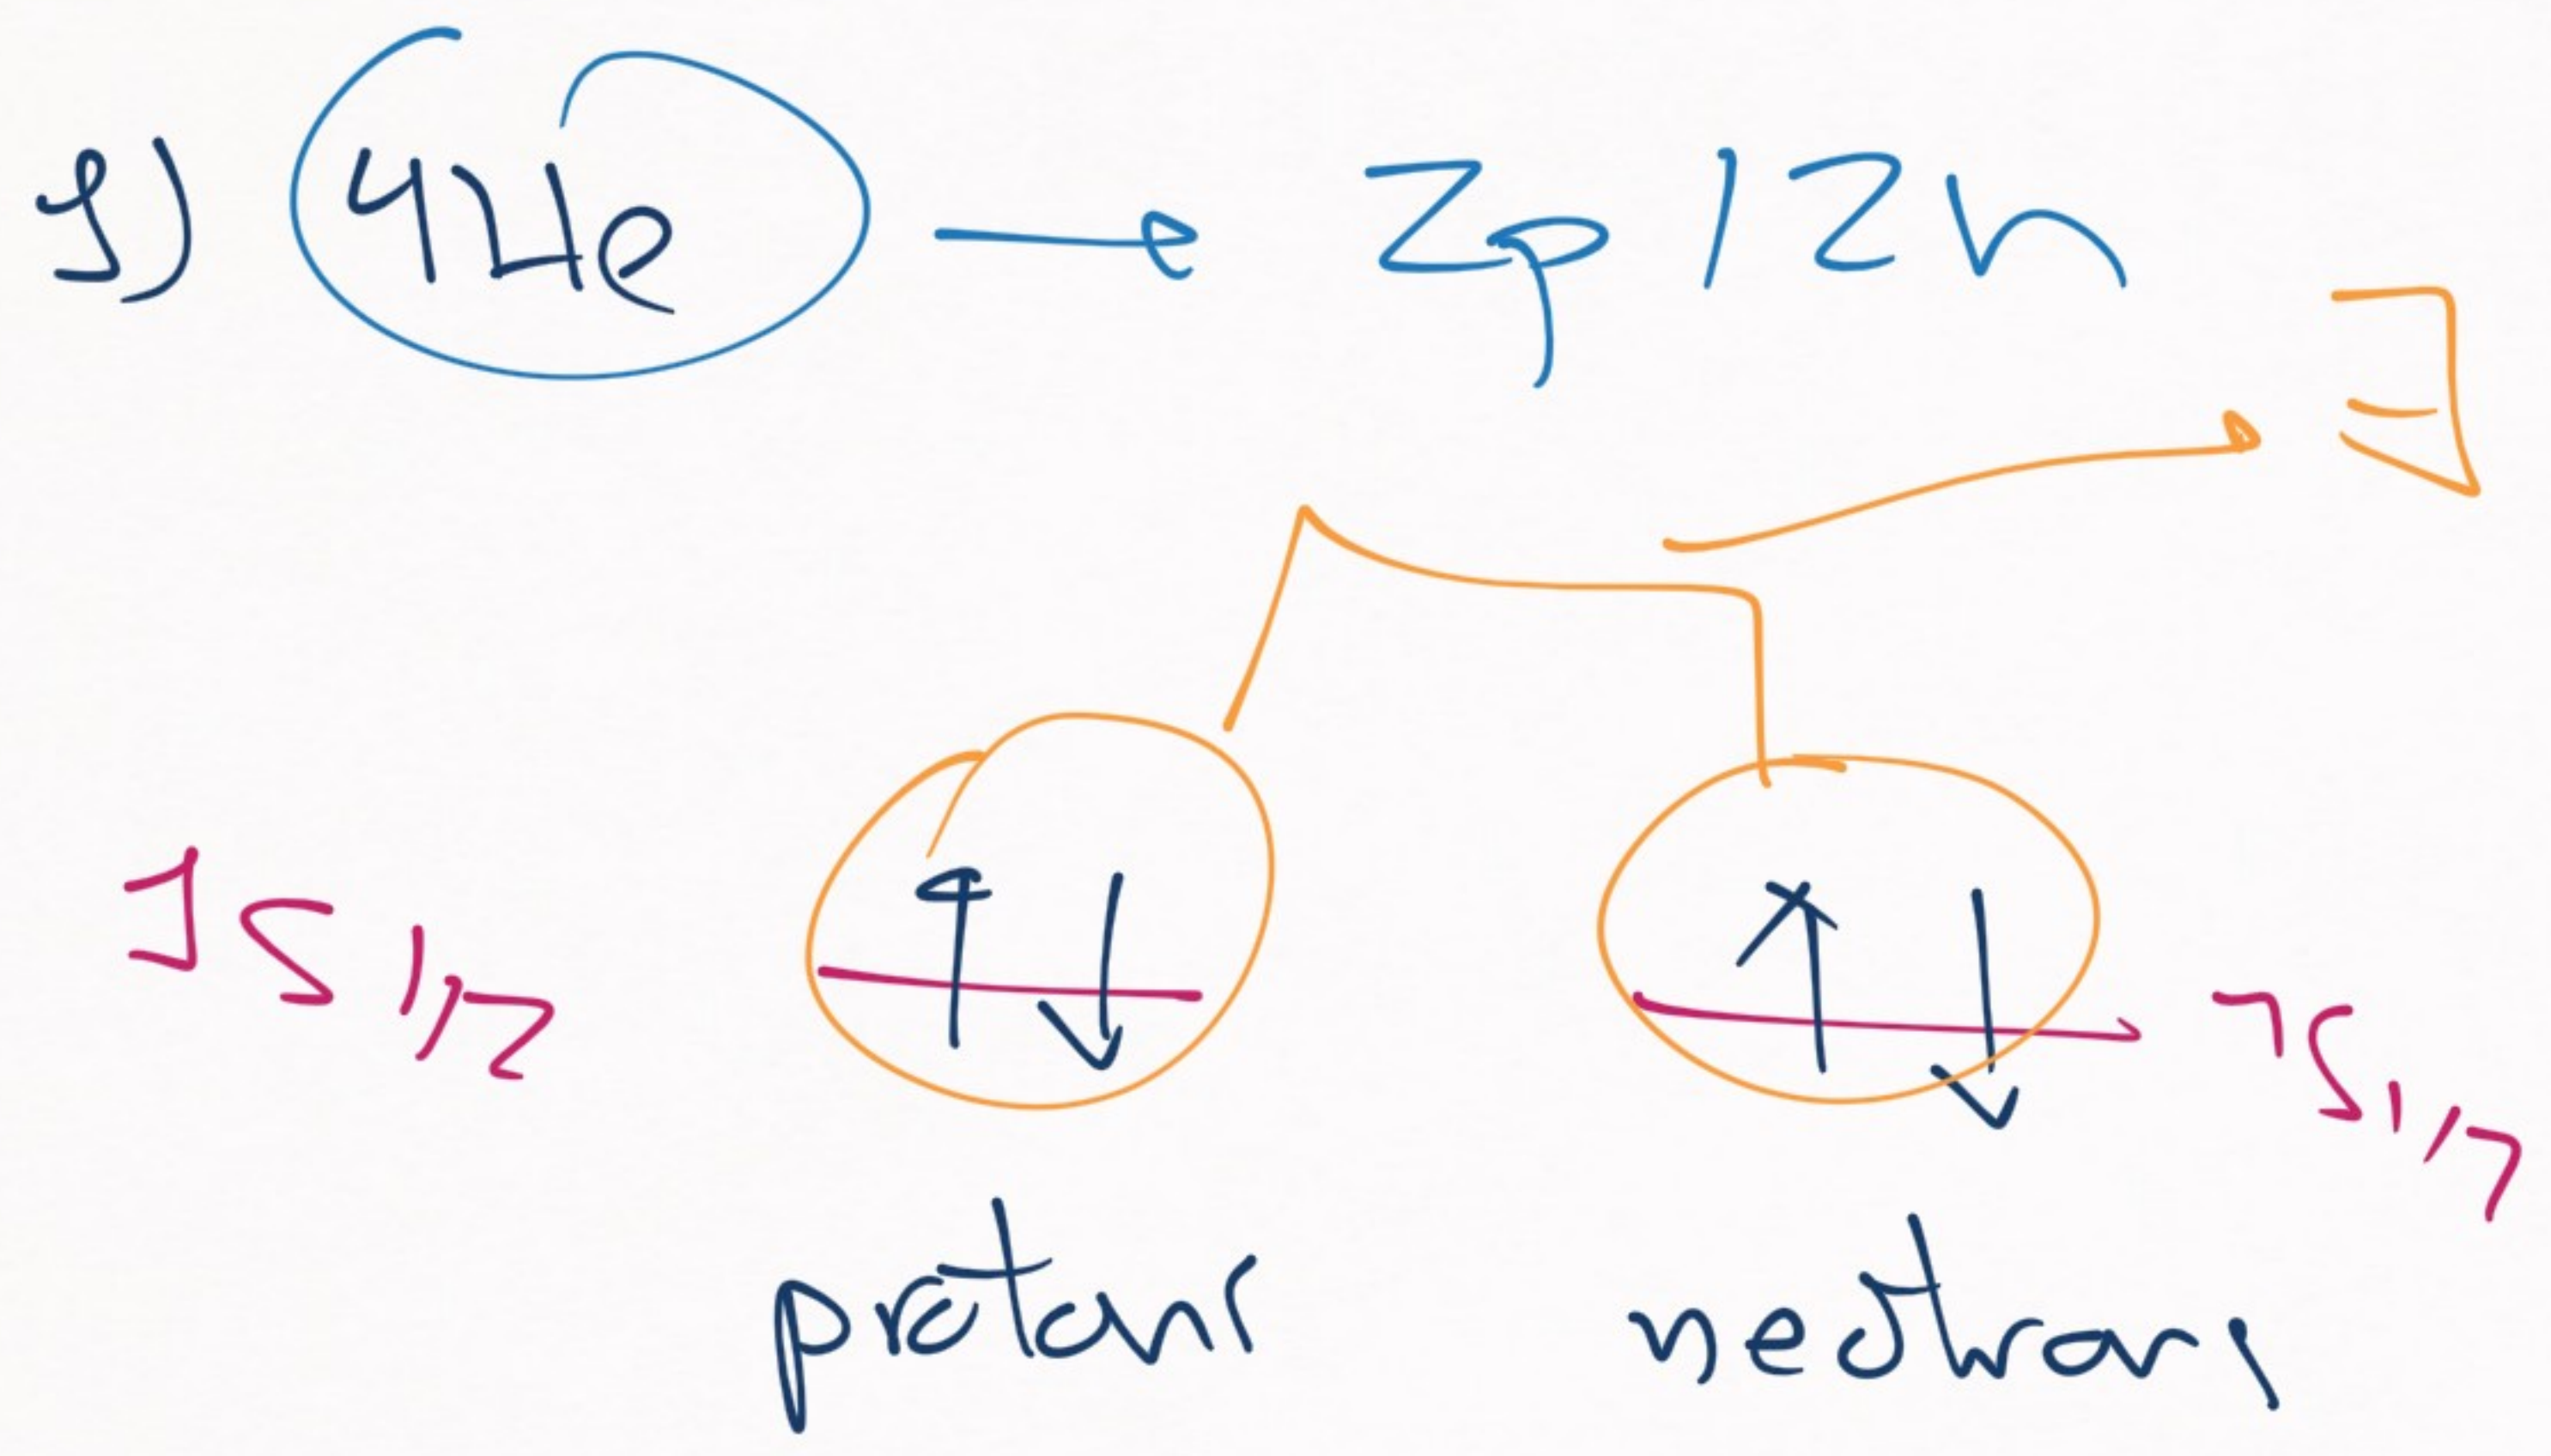 1) 4He → 2p / 2n
1s 1/2
1s 1/2
protons neutrons